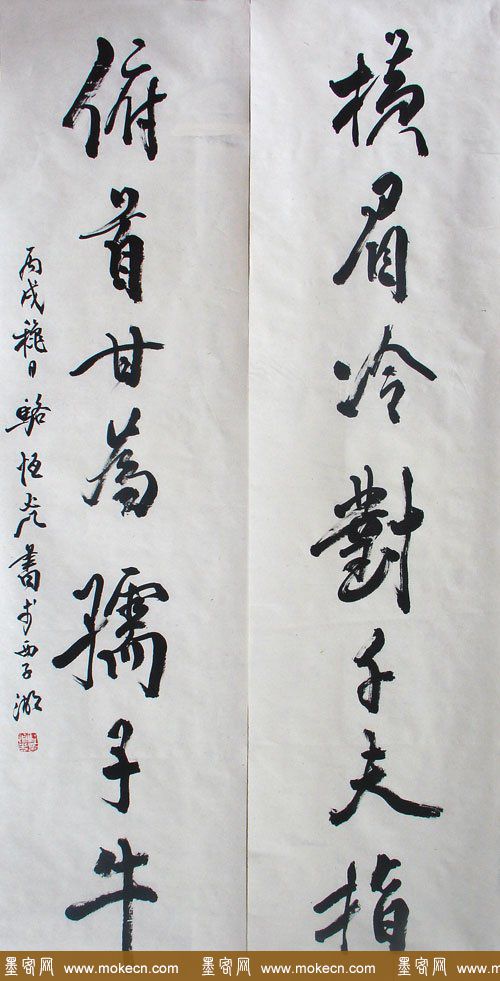 横眉冷對千夫指
俯首甘為孺子牛
丙戌穐日駱恒光書於西子湖
墨客网 www.mokecn.com 墨客网 www.mokecn.com 墨客网 www.mo